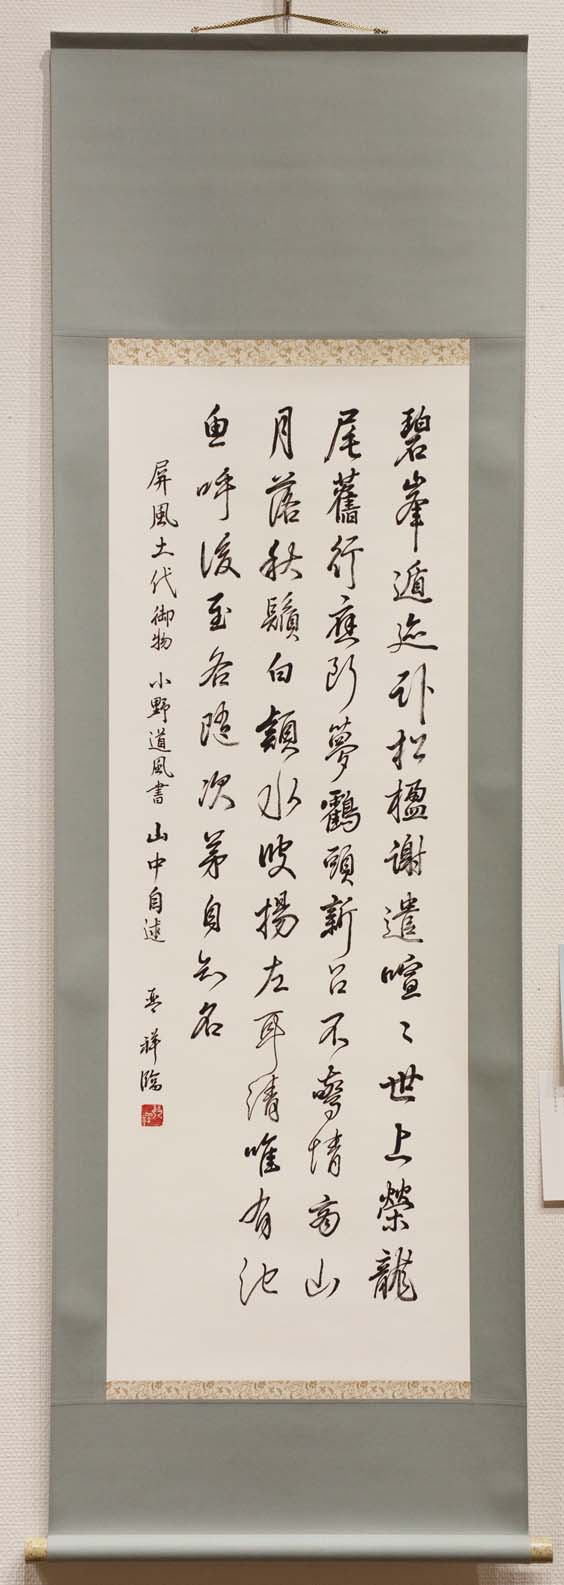 碧峯遁迹臥松楹謝遣喧〻世上榮龍
尾舊行應断夢鶴頭新召不驚情商山
月落秋鬚白潁水波揚左耳清唯有池
魚呼後至各随次第自知名
屏風土代 御物 小野道風書 山中自述 祥臨